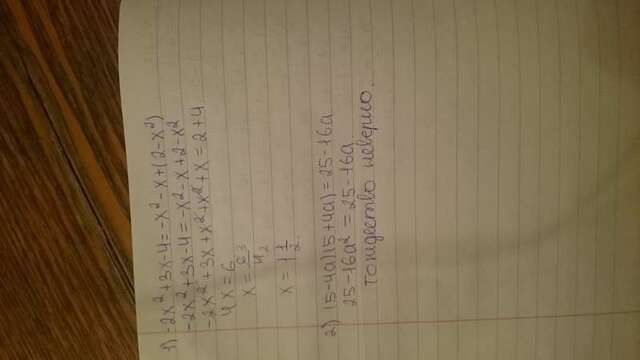 1) -2x²+3x-4=-x²-x+(2-x²)
-2x²+3x-4=-x²-x+2-x²
-2x²+3x+x²+x²+x=2+4
4x=6
x=6/4 3/2
x=1 1/2
2) (5-4a)(5+4a)=25-16a
25-16a²=25-16a
тождество неверно.